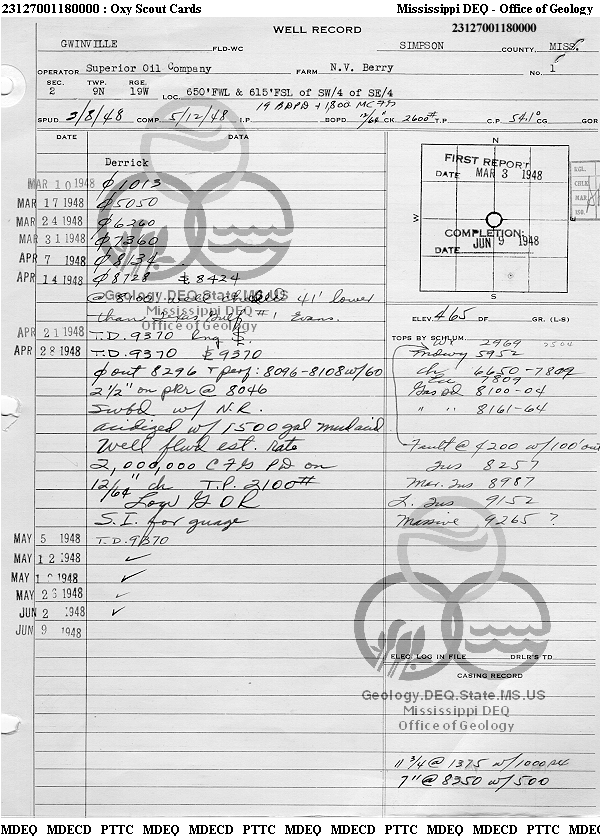 23127001180000 : Oxy Scout Cards Mississippi DEQ - Office of Geology
WELL RECORD 23127001180000
GWINVILLE FLD-WC SIMPSON COUNTY, MISS.
OPERATOR Superior Oil Company FARM N.V. Berry No. 1
SEC. TWP. RGE.
2 9N 19W LOC. 650'FWL & 615'FSL of SW/4 of SE/4
19 BDPD + 1,800 MCF
SPUD 3/8/48 COMP. 5/12/48 I.P. BOPD 12/64" CK. 2600# T.P. C.P. 54.1° CG. GOR
DATE DATA
Derrick
MAR 10 1948 ϕ 1013
MAR 17 1948 ϕ 5050
MAR 24 1948 ϕ 6260
MAR 31 1948 ϕ 7360
APR 7 1948 ϕ 8134
APR 14 1948 ϕ 8728 8424
41' lower
than Gulf #1 Evans.
APR 21 1948 T.D. 9370
APR 28 1948 T.D. 9370 9370
ϕ out 8296 + perf: 8096-8108 w/60
2 1/2" on pkr @ 8046
Swbd w/ N.R.
acidized w/ 1500 gal mud acid
Well flwd est. rate
2,000,000 CFG PD on
12/64" ch T.P. 2100#
Low G O R
S.I. for guage
MAY 5 1948 T.D. 9370
MAY 12 1948 ✓
MAY 1 1948 ✓
MAY 26 1948 ✓
JUN 2 1948 ✓
JUN 9 1948
N
W
E
S
FIRST REPORT
DATE MAR 3 1948
COMPLETION:
DATE JUN 9 1948
ELEV. 465 DF GR. (L-S)
TOPS BY SCHLUM.
Wx 2969
Midwy 5952
Ch 6650-7809
Eu 7809
Gas pd 8100-04
" " 8161-64
Fault @ 4200 w/100' out
Tus 8257
Mar. Tus 8987
L. Tus 9152
Massive 9265 ?
Geology.DEQ.State.MS.US
Mississippi DEQ
Office of Geology
ELEC. LOG IN FILE DRLR'S TD
CASING RECORD
Geology.DEQ.State.MS.US
Mississippi DEQ
Office of Geology
11 3/4 @ 1375 w/1000
7" @ 8350 w/500
MDEQ MDECD PTTC MDEQ MDECD PTTC MDEQ MDECD PTTC MDEQ MDECD PTTC MDEQ MDECD